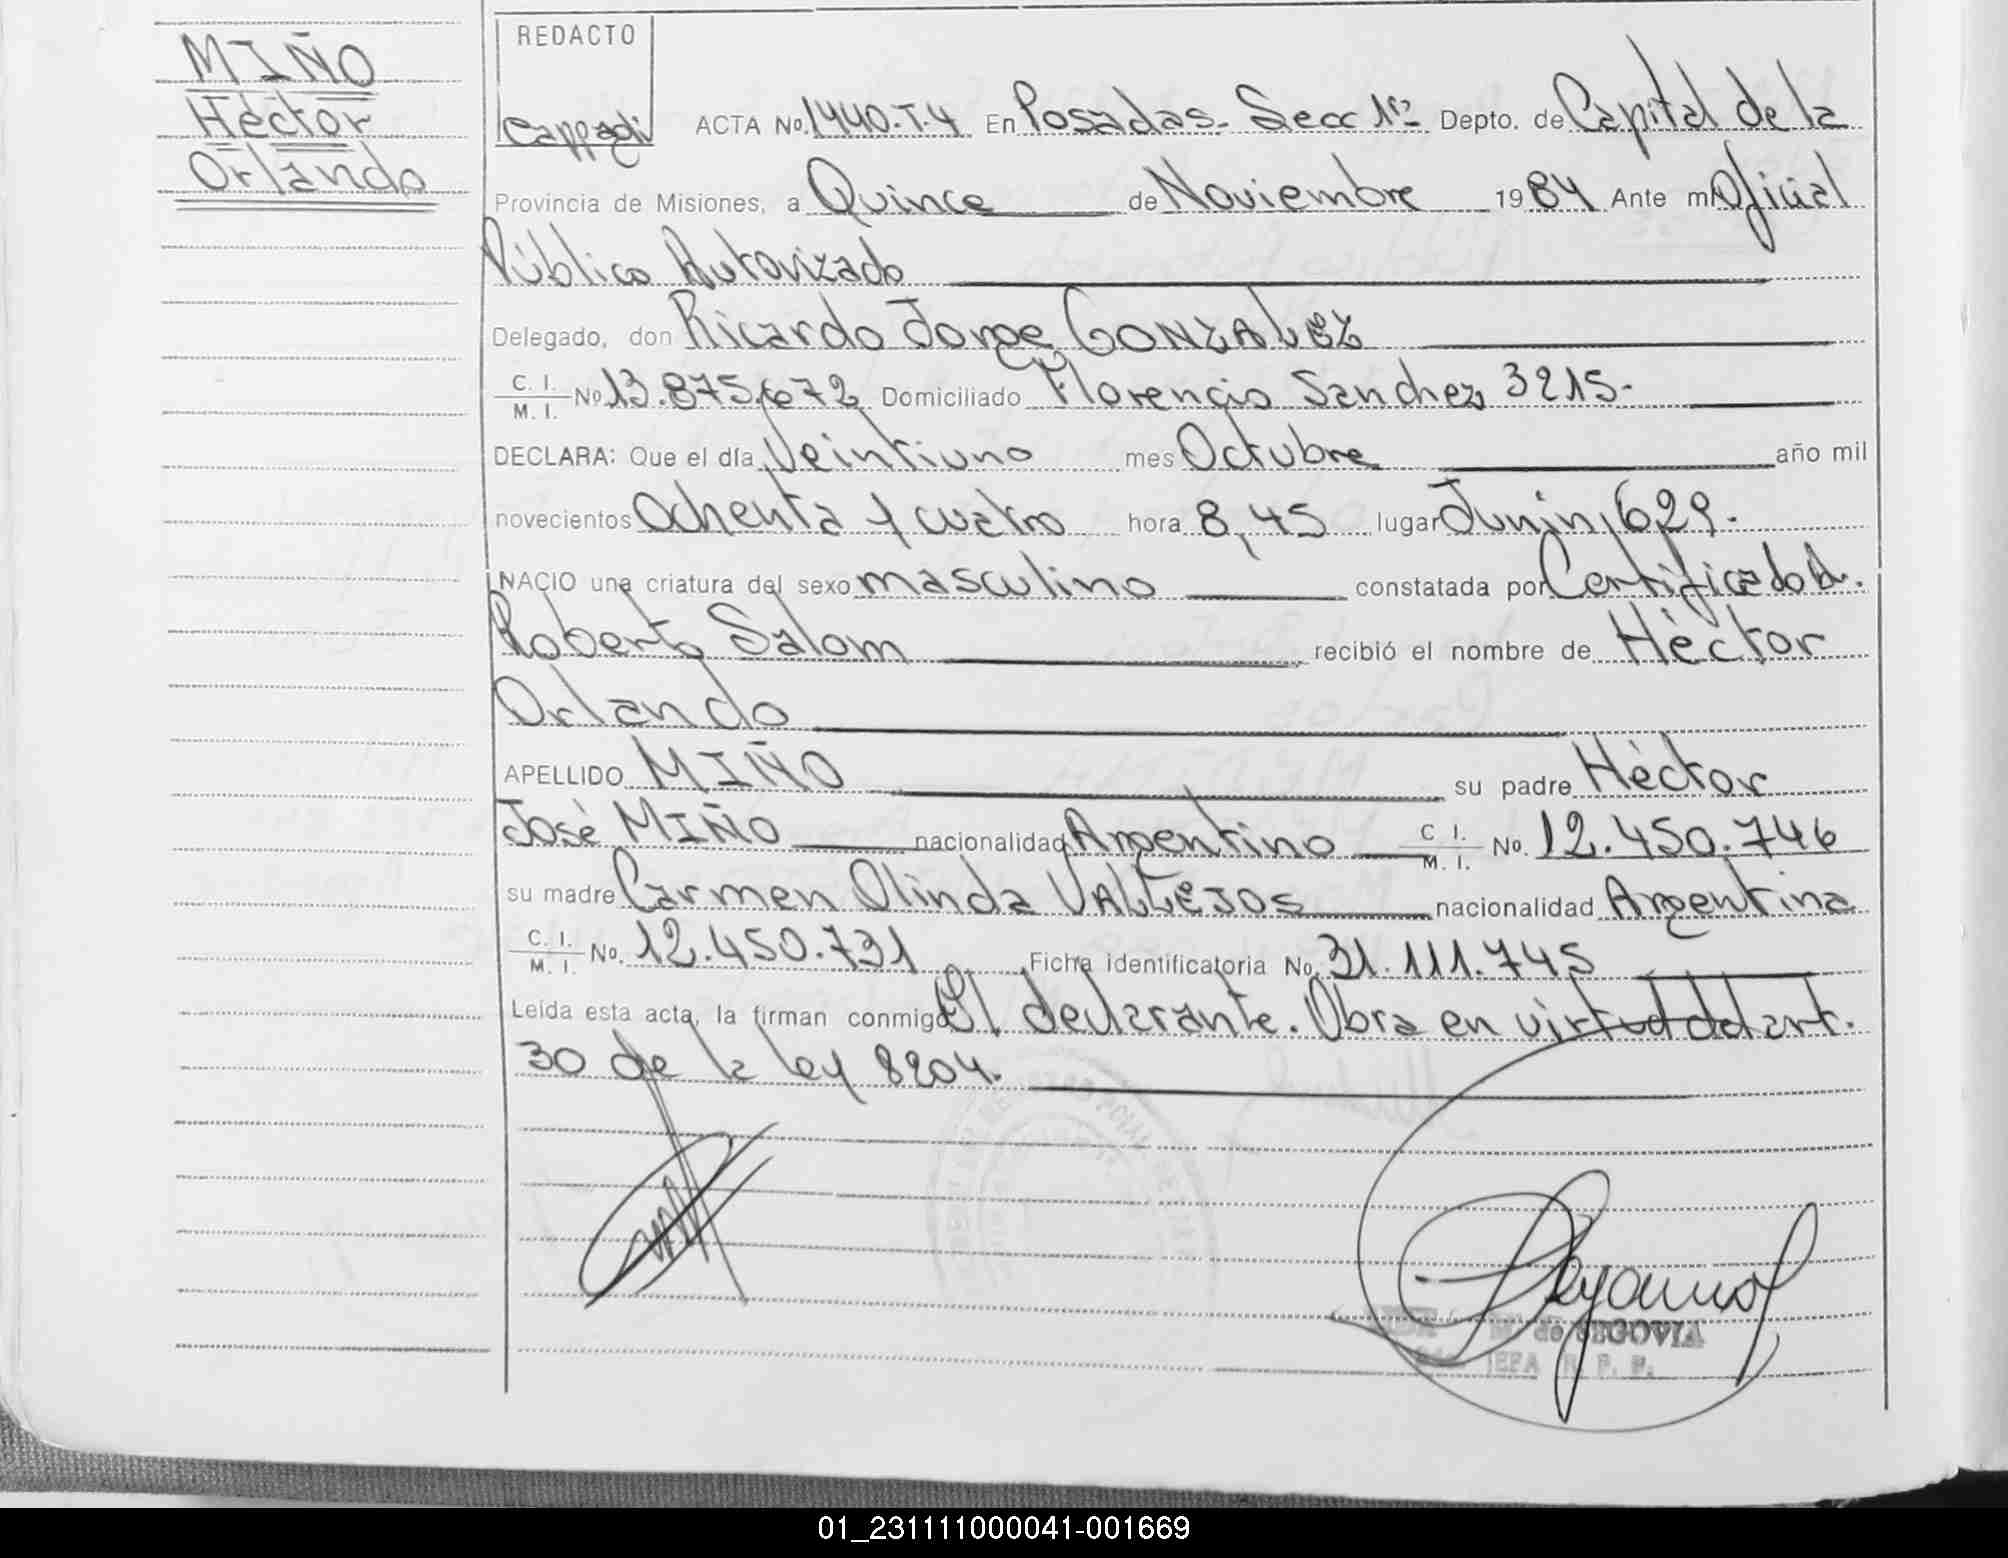 MIÑO
Héctor
Orlando
REDACTO
ACTA No. 1440-T-4 En Posadas-Secc 1º- Depto. de Capital de la
Provincia de Misiones, a Quince de Noviembre 1984 Ante mí Oficial
Público Autorizado
Delegado, don Ricardo Jorge GONZALEZ
C. I.
M. I. No 13.875.672 Domiciliado Florencio Sanchez 3215-
DECLARA: Que el día Veintiuno mes Octubre año mil
novecientos Ochenta y cuatro hora 8,45 lugar Junín 629.
NACIO una criatura del sexo masculino constatada por Certificado
Roberto Salom recibió el nombre de Héctor
Orlando
APELLIDO MIÑO su padre Héctor
José MIÑO nacionalidad Argentino C. I.
M. I. No. 12.450.746
su madre Carmen Olinda VALLEJOS nacionalidad Argentina
C. I.
M. I. No. 12.450.731 Ficha identificatoria No. 31.111.745
Leída esta acta, la firman conmigo El declarante. Obra en virtud del art.
30 de la ley 8204.
de SEGOVIA
JEFA R. P. P.
01_231111000041-001669